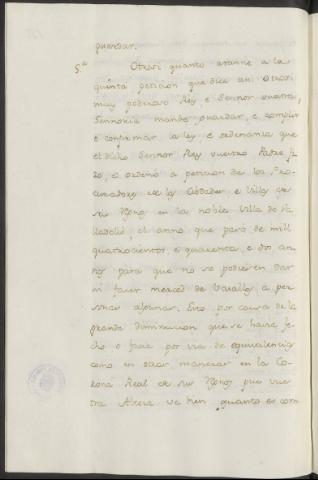 guardar.
5.ª Otrosi quanto atanne a la
quinta peticion que dice asi Otrosi
muy poderoso Rey, e Sennor vuestra
Sennoria mande guardar, e complir
e confirmar la ley e ordenanza que
el dicho Sennor Rey vuestro Padre fi
zo, e ordenó a peticion de los Pro-
curadores de las Cibdades e Villas de
sus Reynos en la noble Villa de Va
lladolid el anno que pasó de mill
quatrocientos, e quarenta e dos an
nos para que no se podiesen dar
ni facer merced de Vasallos a per
sonas algunas. Esto por causa de la
grande diminucion que se havia fe
cho e facie por via de equivalencias
como en otras maneras en la Co
rona Real de sus Reynos que vues
tra Alteza ve bien quanto es com